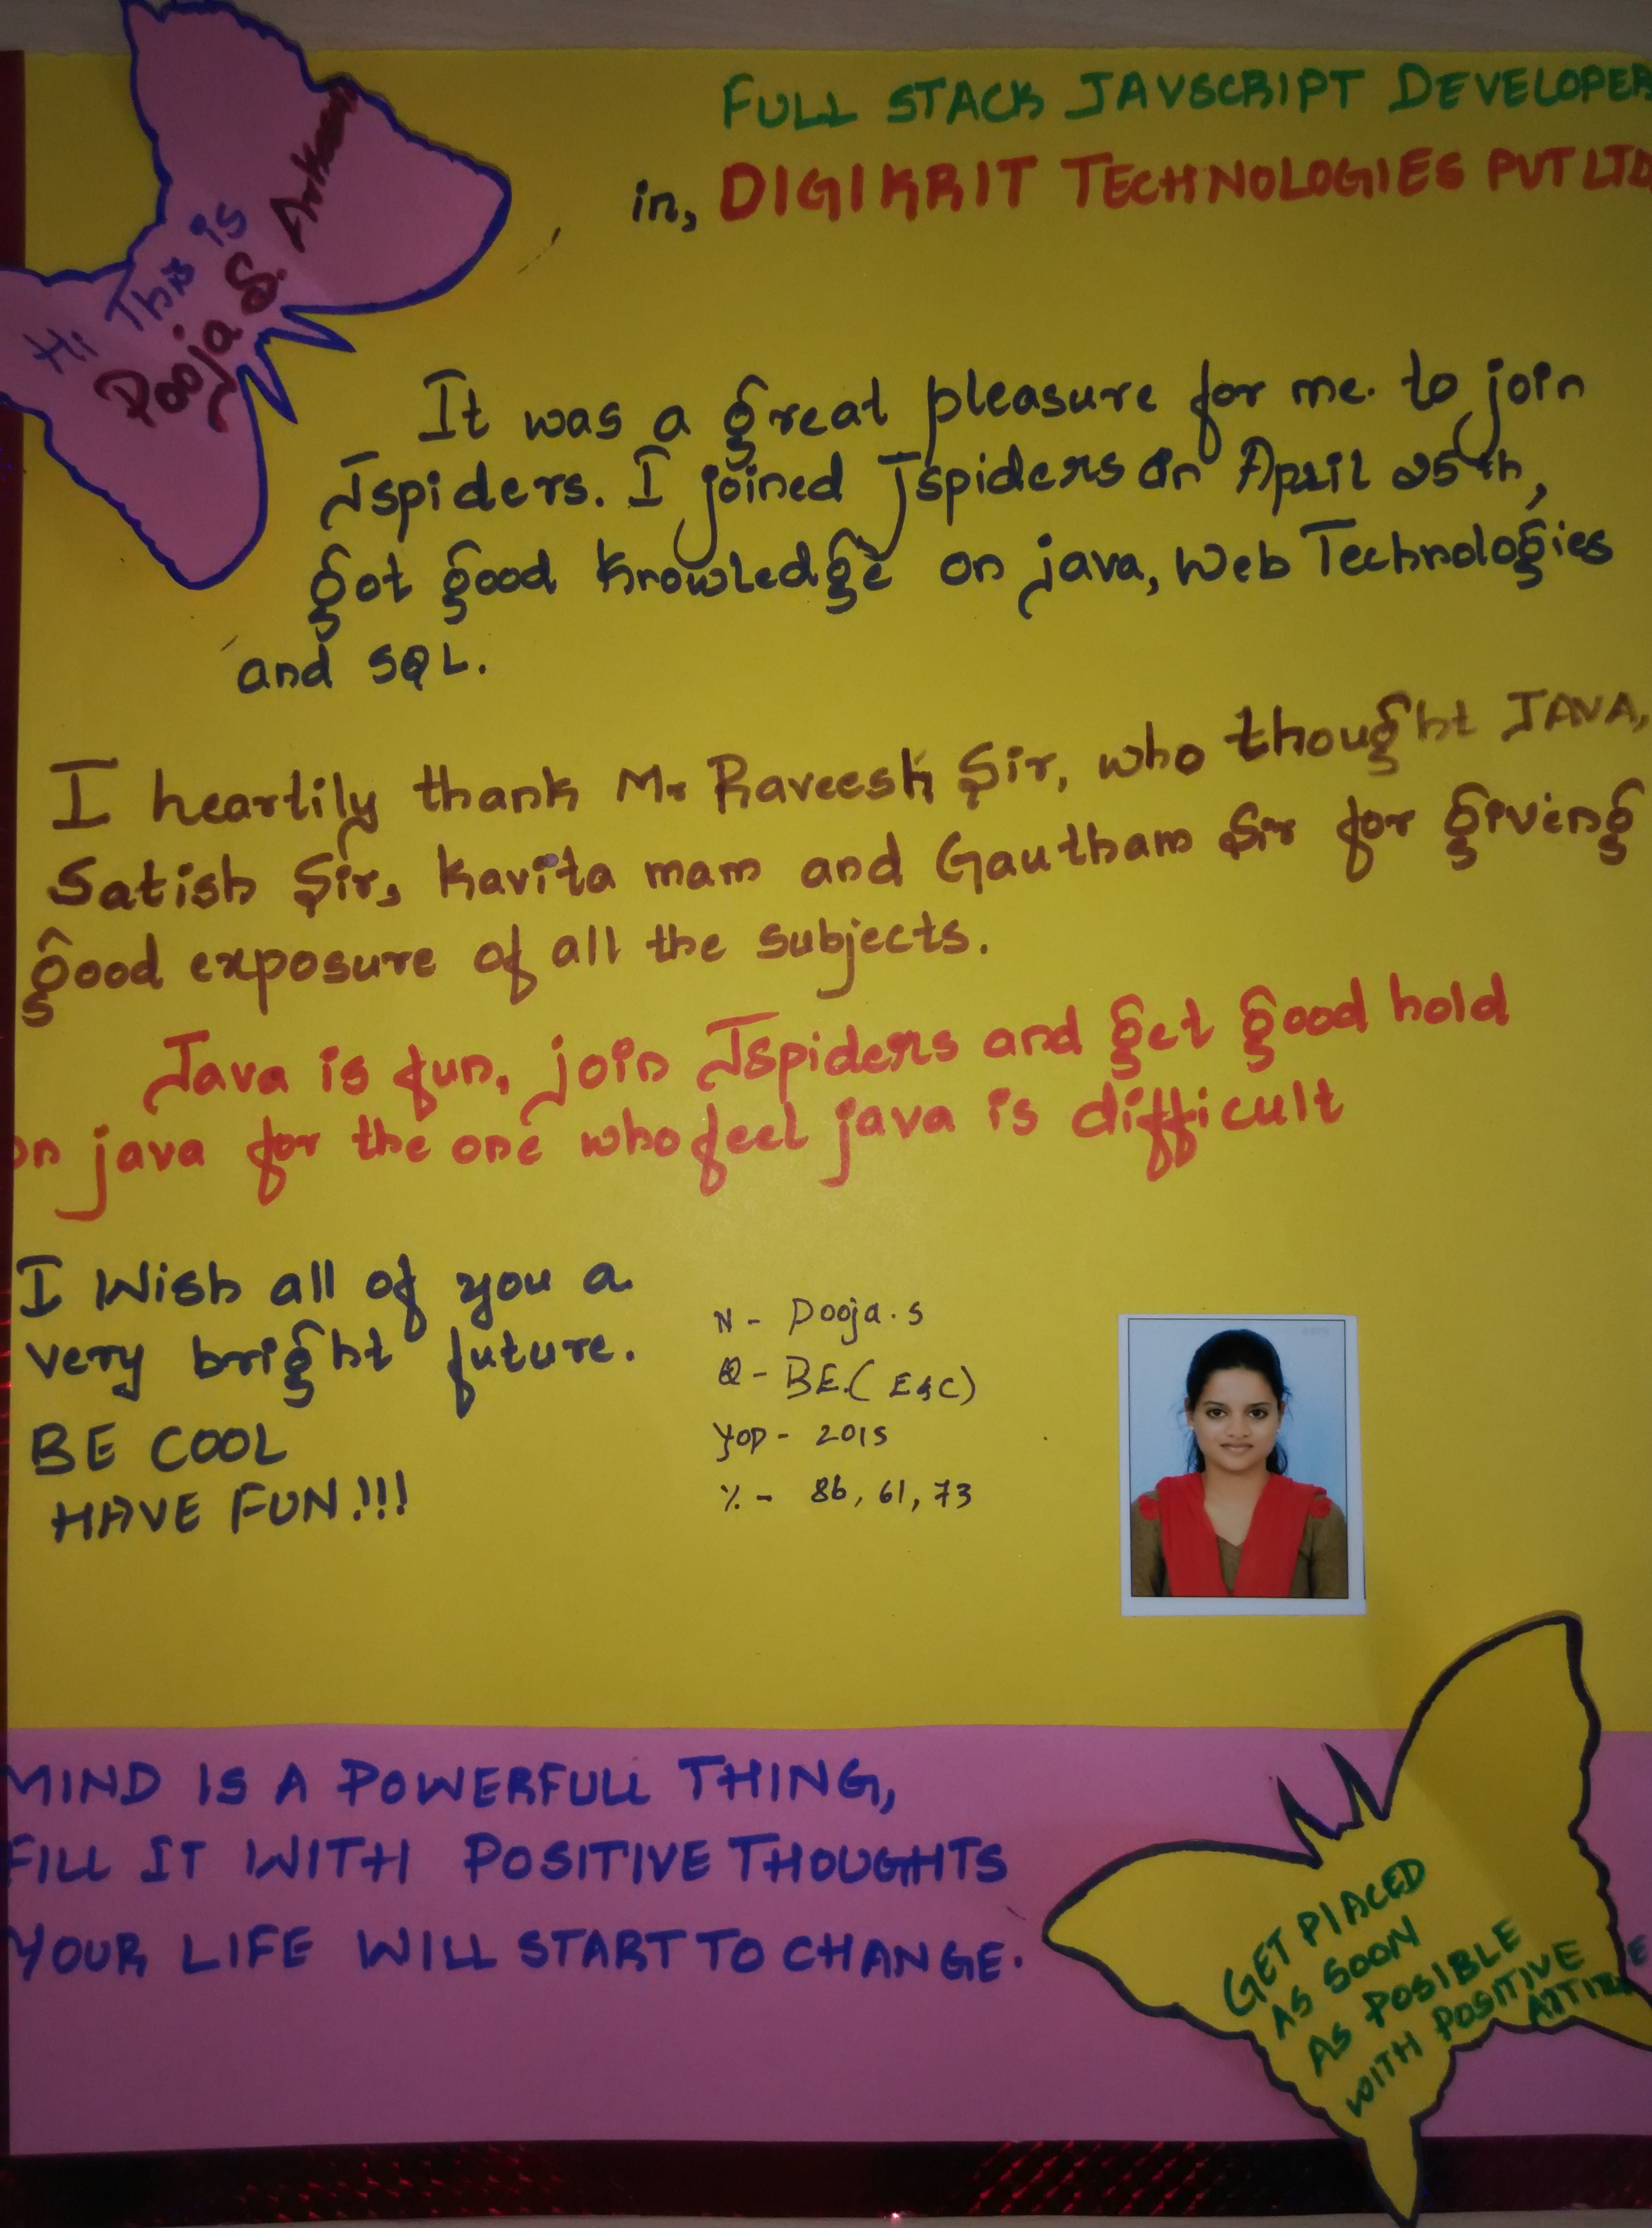 Hi This is
Pooja S.
FULL STACK JAVSCRIPT DEVELOPER
in, DIGIKRIT TECHNOLOGIES PVT LTD
It was a great pleasure for me. to join
Jspiders. I joined Jspiders on April 25th,
got good knowledge on java, Web Technologies
and SQL.
I heartily thank Mr Raveesh Sir, who thought JAVA,
Satish Sir, Kavita mam and Gautham Sir for giving
good exposure of all the subjects.
Java is fun, join Jspiders and get good hold
on java for the one who feel java is difficult
I Wish all of you a
very bright future.
BE COOL
HAVE FUN!!!
N - Pooja.S
Q - BE.(E&C)
YOP - 2015
% - 86, 61, 73
MIND IS A POWERFULL THING,
FILL IT WITH POSITIVE THOUGHTS
YOUR LIFE WILL START TO CHANGE.
GET PlACED
AS SOON
AS POSIBLE
WITH POSITIVE